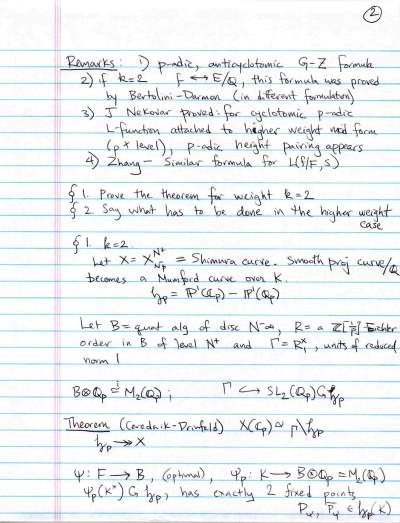 2
Remarks: 1) p-adic, anticyclotomic G-Z formula
2) if k=2 f ↔ E/Q, this formula was proved
by Bertolini-Darmon (in different formulation)
3) J Nekovar proved: for cyclotomic p-adic
L-function attached to higher weight mod form
(p ∤ level), p-adic height pairing appears
4) Zhang - Similar formula for L(f/F,s)
§ 1. Prove the theorem for weight k=2
§ 2 Say what has to be done in the higher weight
case
§ 1. k=2.
Let X = X^{N+}_{N^-p} = Shimura curve. Smooth proj curve/Q
becomes a Mumford curve over K.
h_p = P'(C_p) - P'(Q_p)
Let B = quat alg of disc N^-∞, R = a Z[1/p]-Eichler
order in B of level N^+ and Γ = R_1^x, units of reduced
norm 1
B⊗Q_p ≅ M_2(Q_p); Γ ↪ SL_2(Q_p) G h_p
Theorem (Cerednik-Drinfeld) X(C_p) ≃ Γ\h_p
h_p ↠ X
Ψ: F → B, (optimal), Ψ_p: K → B⊗Q_p = M_2(Q_p)
Ψ_p(K^x) G h_p, has exactly 2 fixed points
P_Ψ, P̄_Ψ ∈ h_p(K)